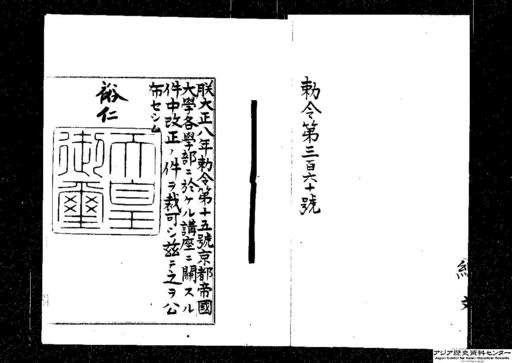 勅令第三百六十號
朕大正八年勅令第十五號京都帝國
大學各學部ニ於ケル講座ニ關スル
件中改正ノ件ヲ裁可シ茲ニ之ヲ公
布セシム
裕仁
天皇
御璽
アジア歴史資料センター
Japan Center for Asian Historical Records